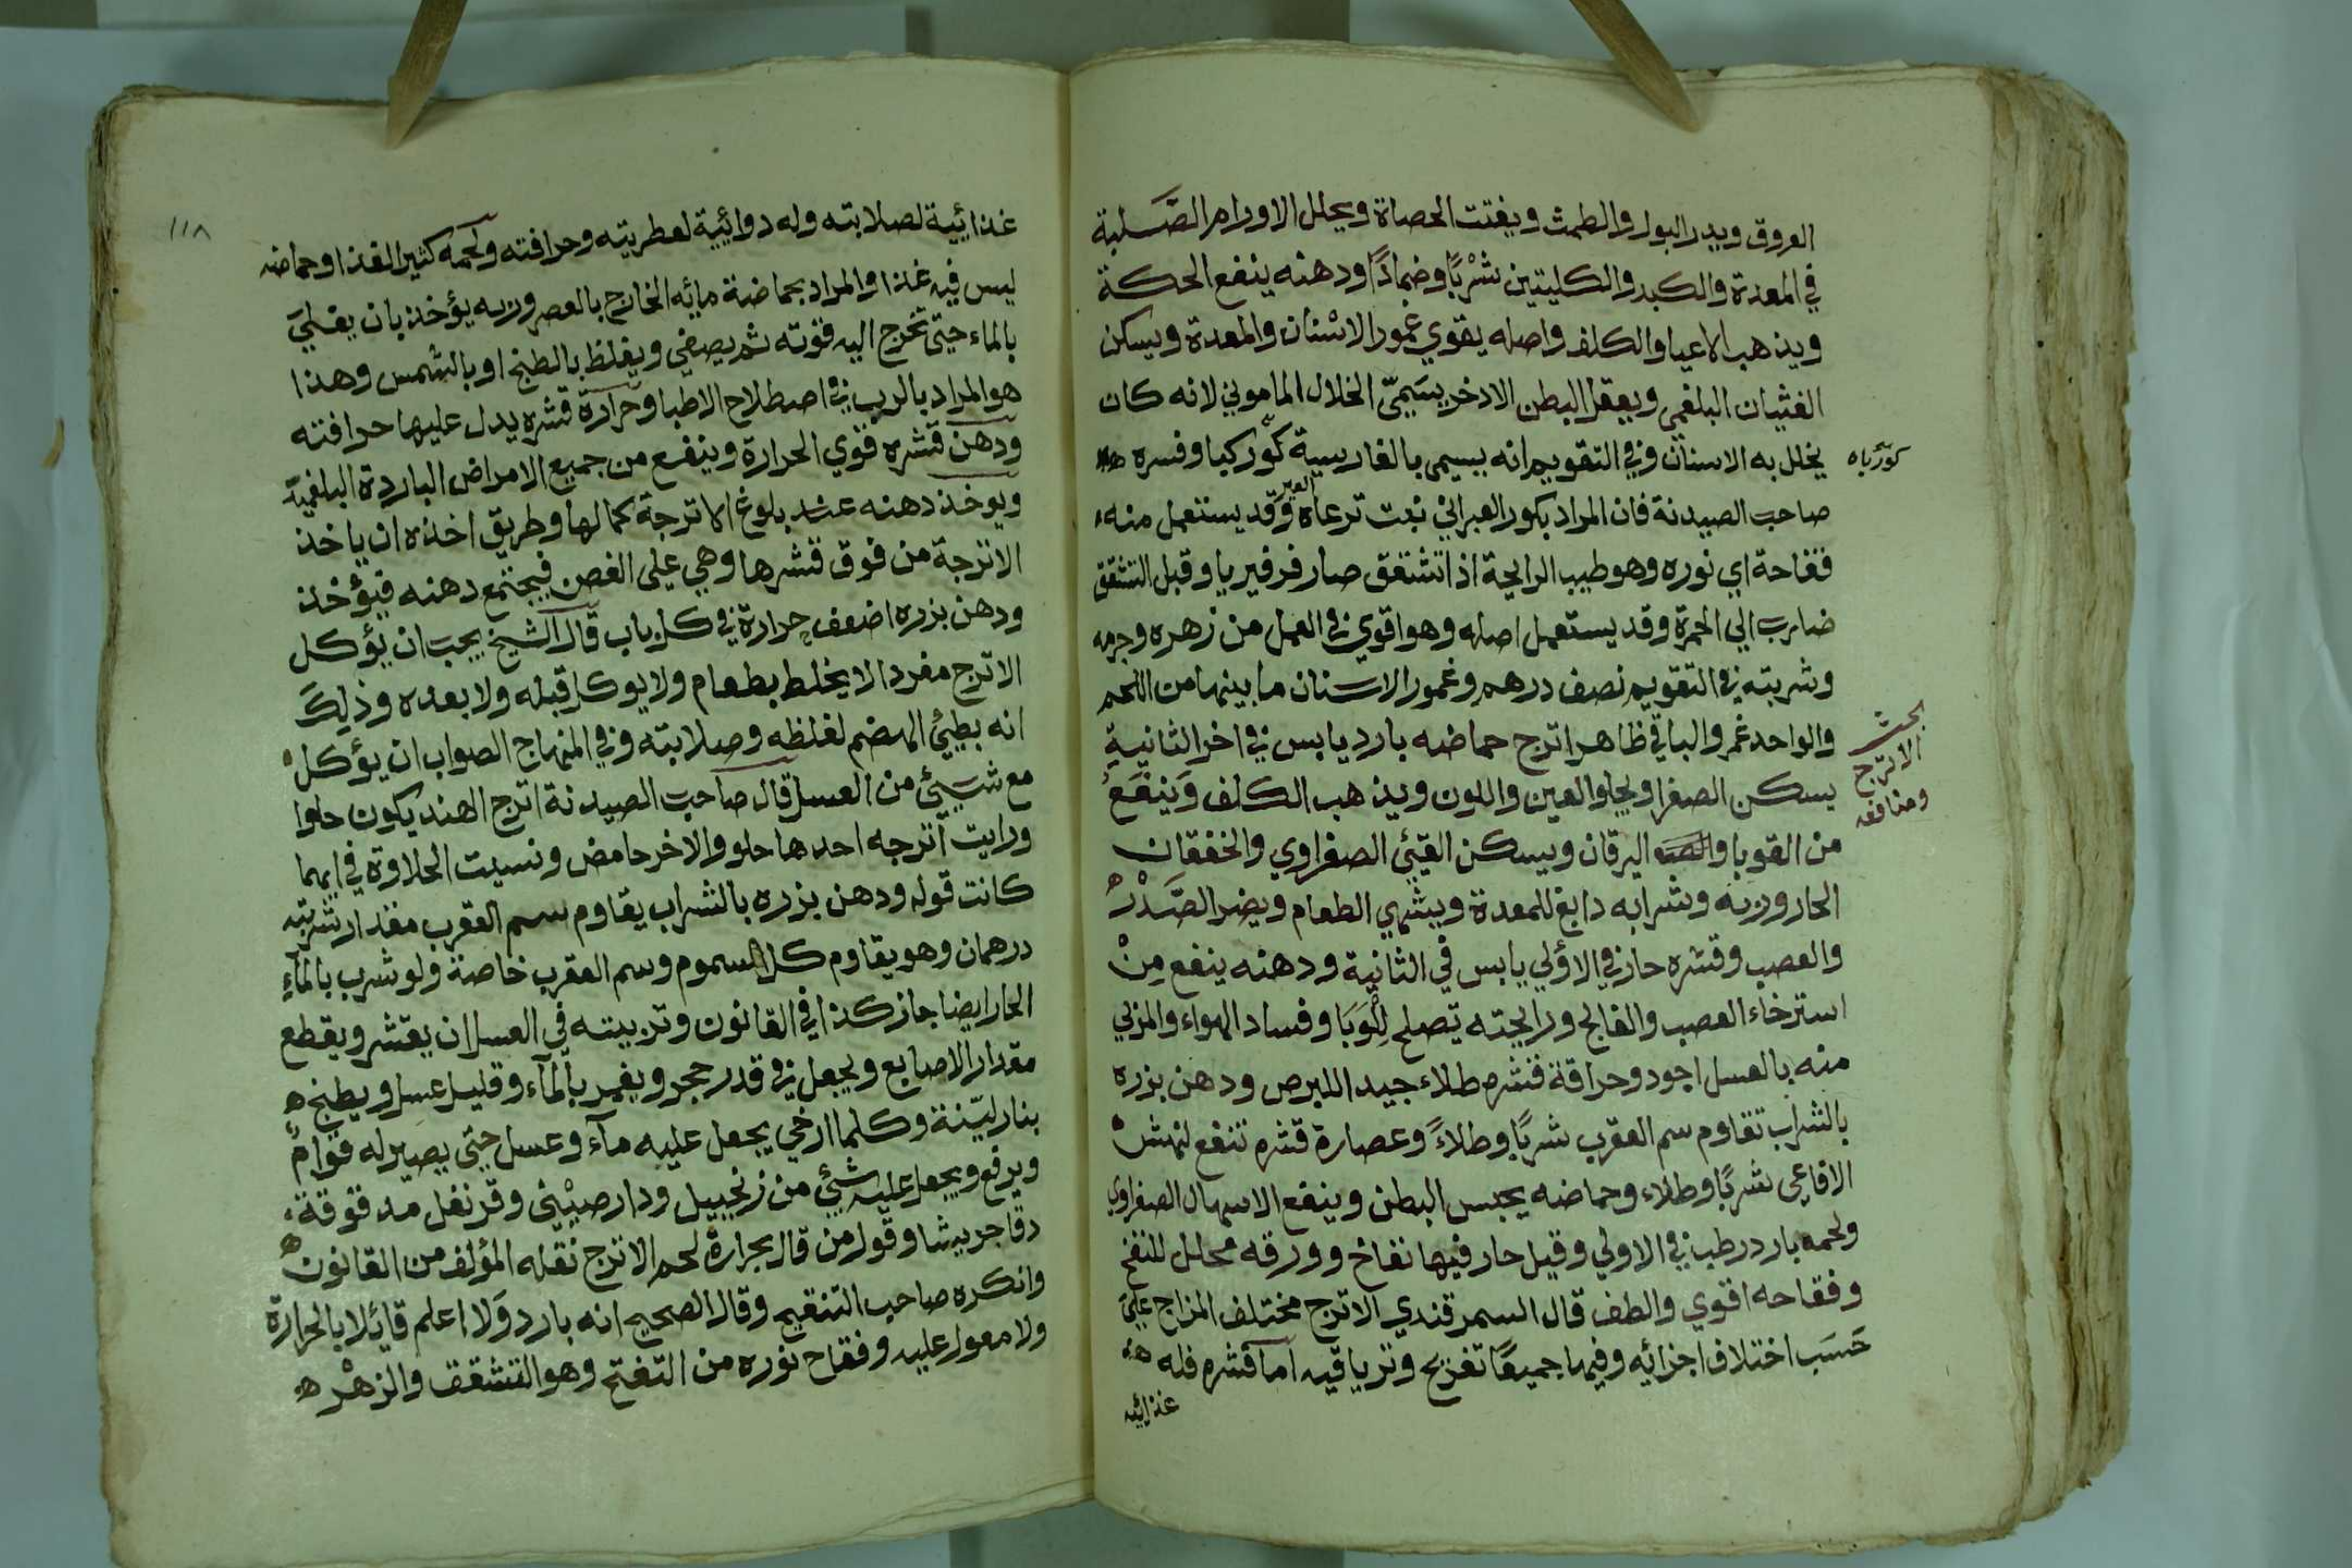 العروق ويدر البول والطمث ويفتت الحصاة ويحلل الاورام الصلبة
في المعدة والكبد والكليتين شربًا وضمادًا ودهنه ينفع الحكة
ويذهب الاعيا والكلف واصله يقوي عمور الاسنان والمعدة ويسكن
الغثيان البلغمي ويعقل البطن الادخر يسمّى الخلال الماموني لانه كان
يخلل به الاسنان وفي التقويم انه يسمى بالفارسية كور كيا وفسره
كورياه
صاحب الصيدنة فان المراد بكور العبراني نبت ترعاه العير وقد يستعمل منه
فقاحة اي نوره وهو طيب الرايحة اذا تشقق صار فرفيريا وقبل التشقق
ضارب الي الحمرة وقد يستعمل اصله وهو اقوي في العمل من زهره وجرمه
وشربته في التقويم نصف درهم وعمور الاسنان ما بينها من اللحم
والواحد عمر والباقي ظاهر اترج حماضه بارد يابس في اخر الثانية
بحث
الاترج
ومنافعه
يسكن الصفرا ويجلو العين واللون ويذهب الكلف وينفع
من القوبا واليرقان ويسكن القيئ الصفراوي والخفقان
الحار وربه وشرابه دابغ للمعدة ويشهي الطعام ويضر الصدر
والعصب وقشره حار في الاولي يابس في الثانية ودهنه ينفع من
استرخاء العصب والفالج ورايحته تصلح للوبا وفساد الهواء والمربي
منه بالعسل اجود وحراقة قشره طلاء جيد للبرص ودهن بزره
بالشراب تقاوم سم العقرب شربًا وطلاءً وعصارة قشره تنفع لنهش
الافاعي شربًا وطلاء وحماضه يحبس البطن وينفع الاسهال الصفراوي
ولحمه بارد رطب في الاولي وقيل حار فيها نفاخ وورقه محلل للنفخ
وفقاحه اقوي والطف قال السمرقندي الاترج مختلف المزاج علي
حسب اختلاف اجزائه وفيها جميعًا تفريح وترياقيه اما قشره فله
غذائيه
١١٨
غذائيية لصلابته وله دوائيية لعطريته وحرافته ولحمه كثير الغذا وحماضه
ليس فيه غذا والمراد بحماضة مائه الخارج بالعصر وربه يؤخذ بان يغلي
بالماء حتى تخرج اليه قوته ثم يصفي ويغلظ بالطبخ او بالشمس وهذا
هو المراد بالرب في اصطلاح الاطبا وحرارة قشره يدل عليها حرافته
ودهن قشره قوي الحرارة وينفع من جميع الامراض الباردة البلغمية
ويوخذ دهنه عند بلوغ الاترجة كمالها وطريق اخذه ان ياخذ
الاترجة من فوق قشرها وهي على الغصن فيجتمع دهنه فيؤخذ
ودهن بزره اضعف حرارة في كل باب قال الشيخ يجب ان يؤكل
الاترج مفردا لا يخلط بطعام ولا يوكل قبله ولا بعده وذلك
انه بطيئ الهضم لغلظه وصلابته وفي المنهاج الصواب ان يؤكل
مع شيئ من العسل قال صاحب الصيدنة اترج الهند يكون حلوا
ورايت اترجه احدها حلو والاخر حامض ونسيت الحلاوة في ايهما
كانت قوله ودهن بزره بالشراب يقاوم سم العقرب مقدار شربته
درهمان وهو يقاوم كل السموم وسم العقرب خاصة ولو شرب بالماء
الحار ايضا جاز كذا في القانون وتربيته في العسل ان يقشر ويقطع
مقدار الاصابع ويجعل في قدر حجر ويغمر بالماء وقليل عسل ويطبخ
بنار ليّنة وكلما ارخي يجعل عليه ماء وعسل حتى يصير له قوام
ويرفع ويجعل عليه شيئ من زنجبيل ودارصيني وقرنفل مدقوقة
دقا جريشا وقول من قال بحرارة لحم الاترج نقله المؤلف من القانون
وانكره صاحب التنقيح وقال الصحيح انه بارد ولا اعلم قائلا بالحرارة
ولا معول عليه وفقاح نوره من التفتح وهو التشقق والزهر